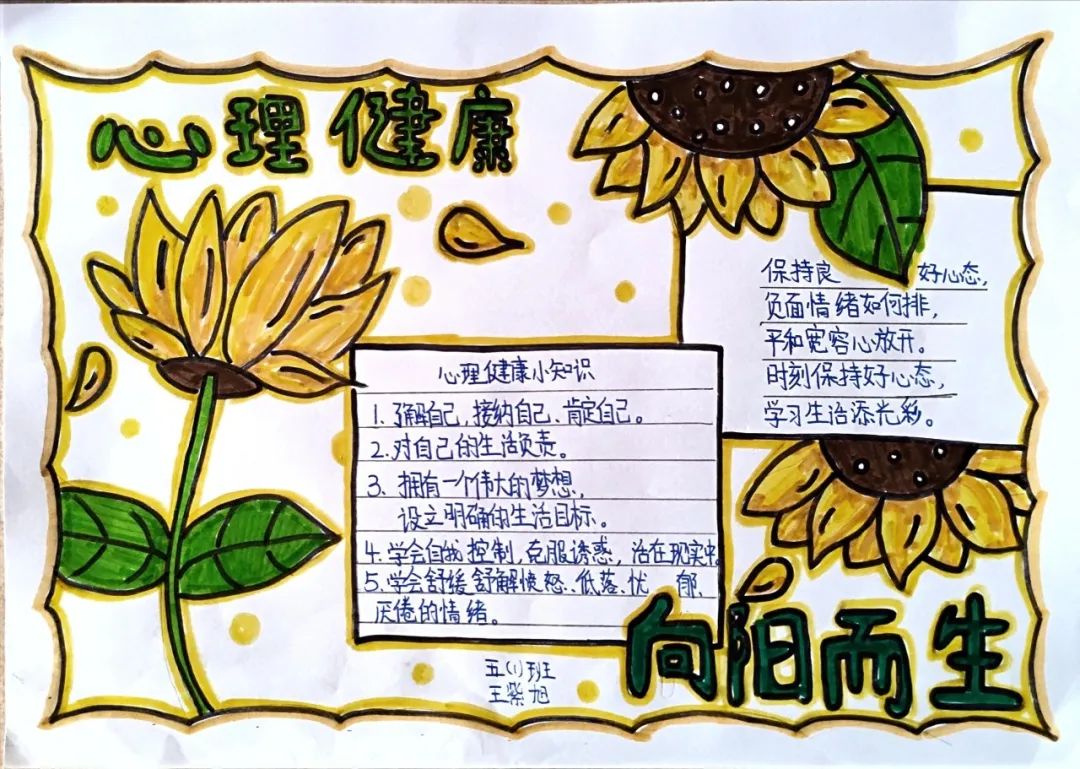 心理健康
保持良好心态,
负面情绪如何排,
平和宽容心放开。
时刻保持好心态,
学习生活添光彩。
心理健康小知识
1.了解自己,接纳自己、肯定自己。
2.对自己的生活负责。
3、拥有一个伟大的梦想,
设立明确的生活目标。
4.学会自我控制,克服诱惑,活在现实中。
5.学会舒缓舒解愤怒、低落、忧郁、
厌倦的情绪。
向阳而生
五(1)班
王紫旭